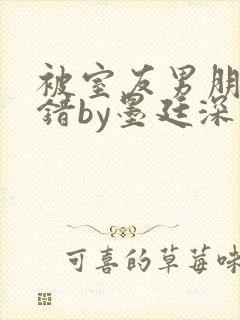 被室友男朋
错by墨廷深
可喜的草莓味